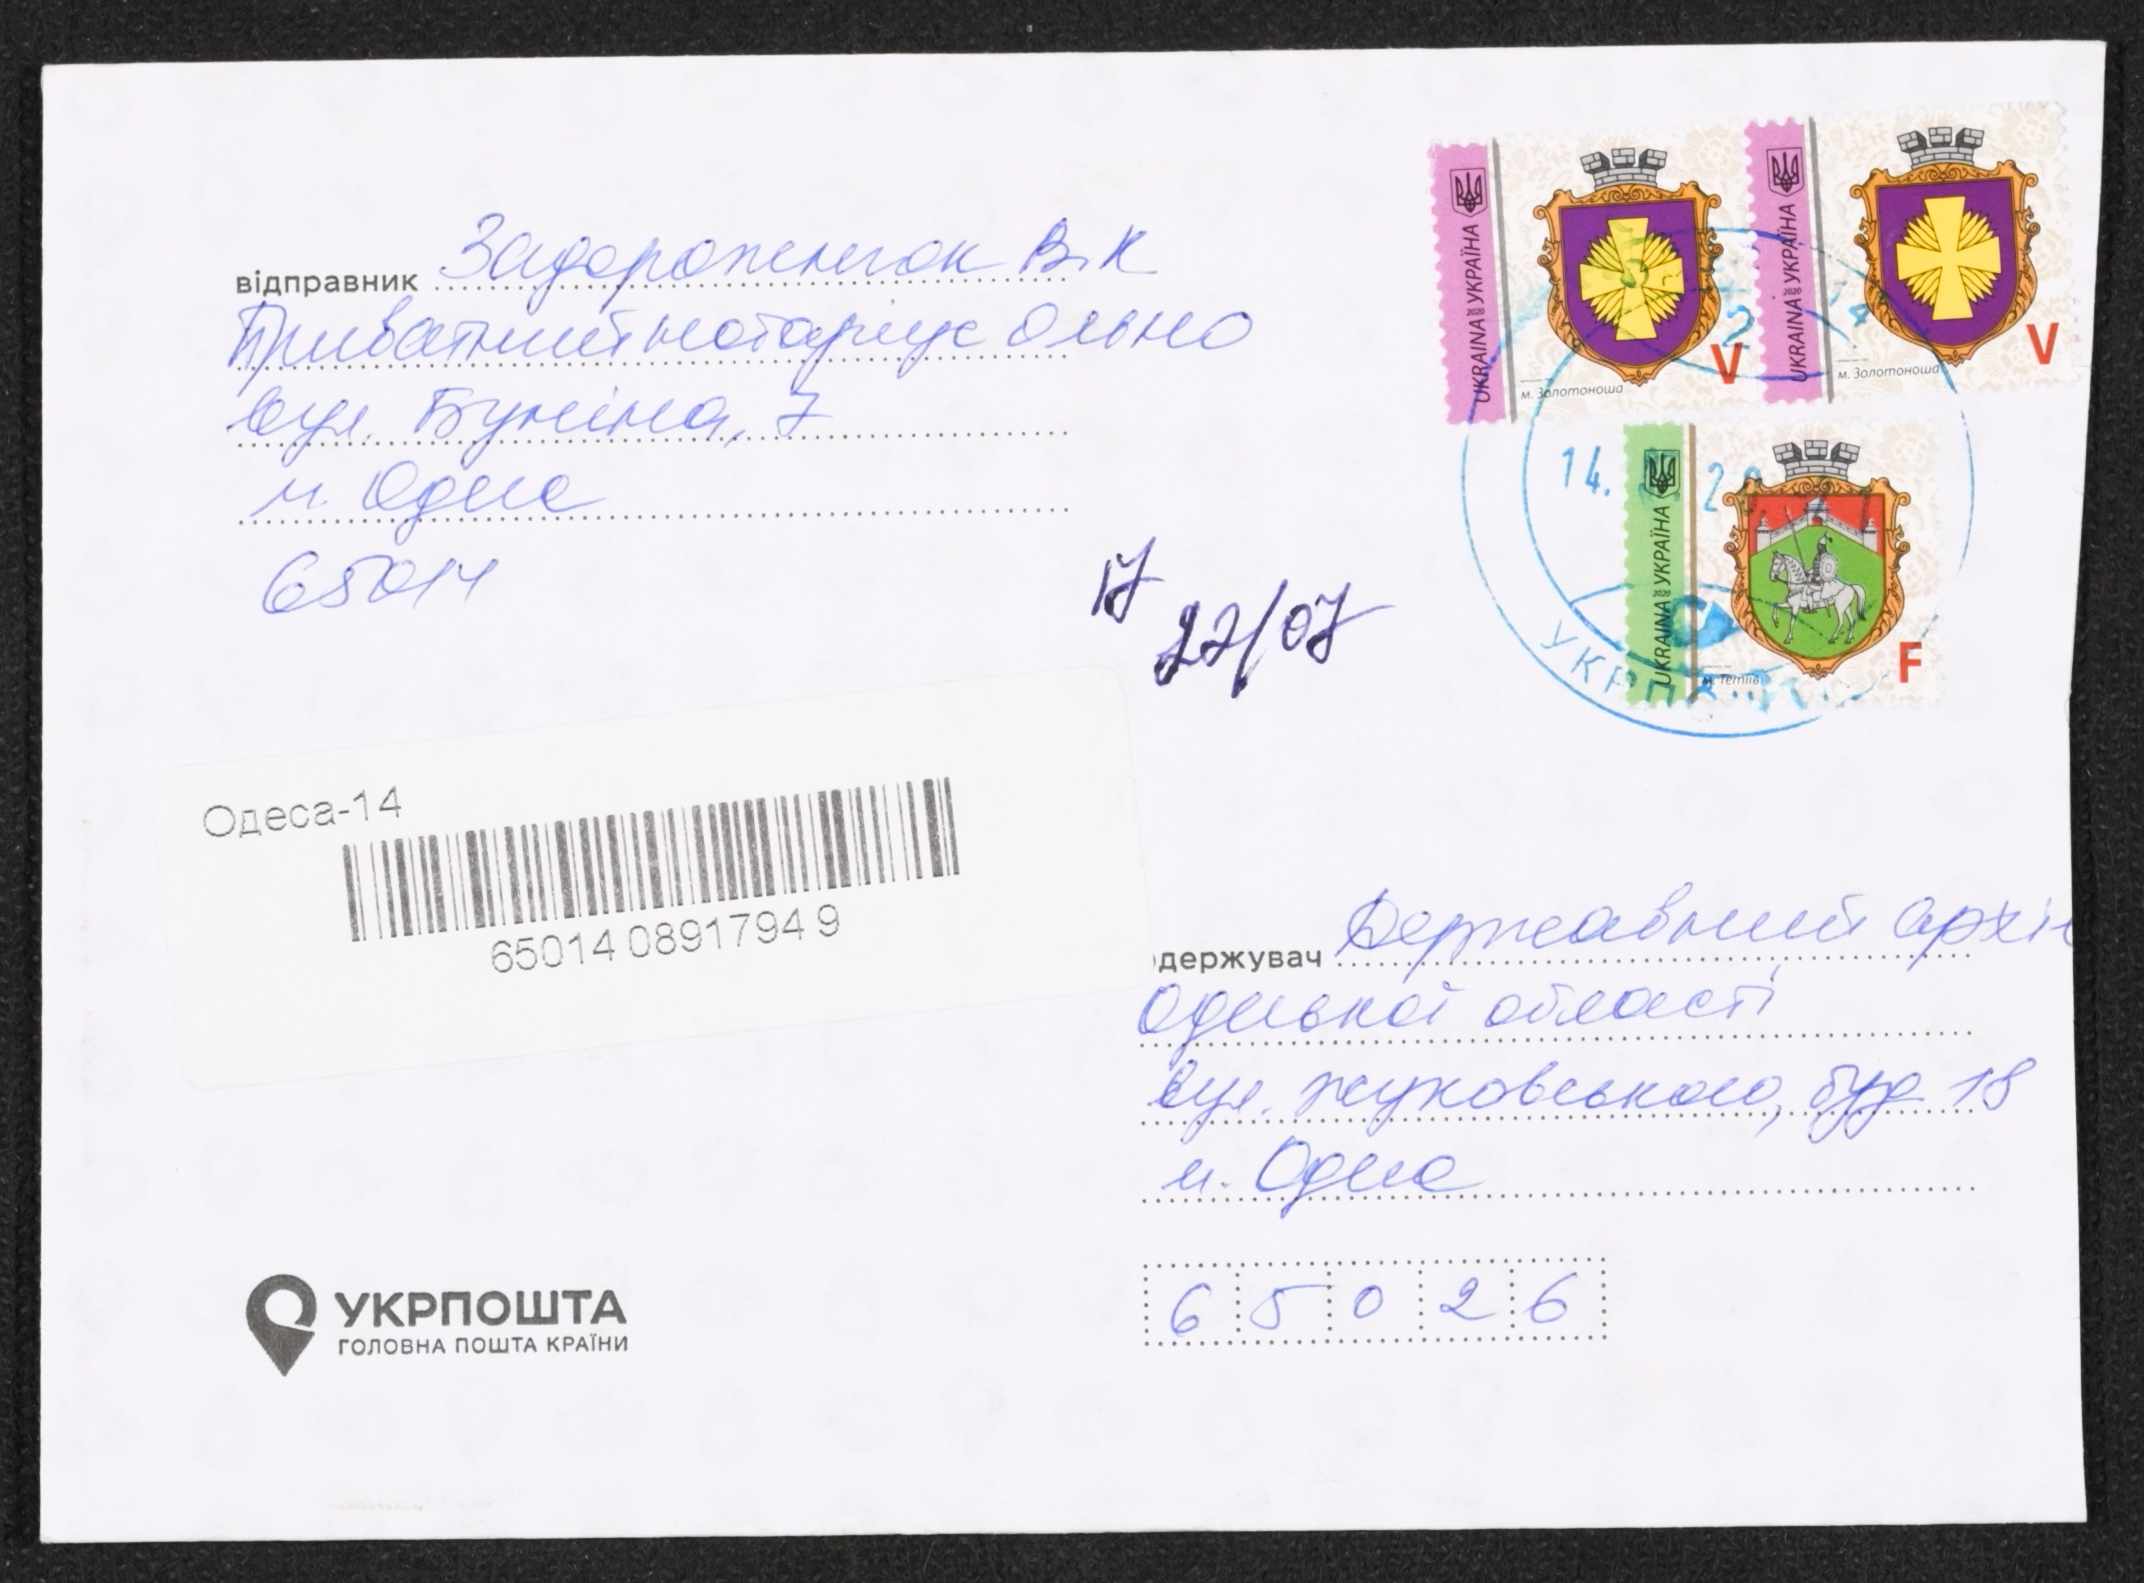 відправник Задорожнюк В.К
Приватний нотаріус
вул. Буніна, 7
м. Одеса
65014
UKRAINA 2020 УКРАЇНА
м. Золотоноша
V
UKRAINA 2020 УКРАЇНА
м. Золотоноша
V
UKRAINA 2020 УКРАЇНА
м. Тетіїв
F
14.
УКРПОШТА
27/07
Одеса-14
65014 0891794 9
одержувач Державний архів
Одеської області
вул. Жуковського, буд 18
м. Одеса
65026
УКРПОШТА
ГОЛОВНА ПОШТА КРАЇНИ